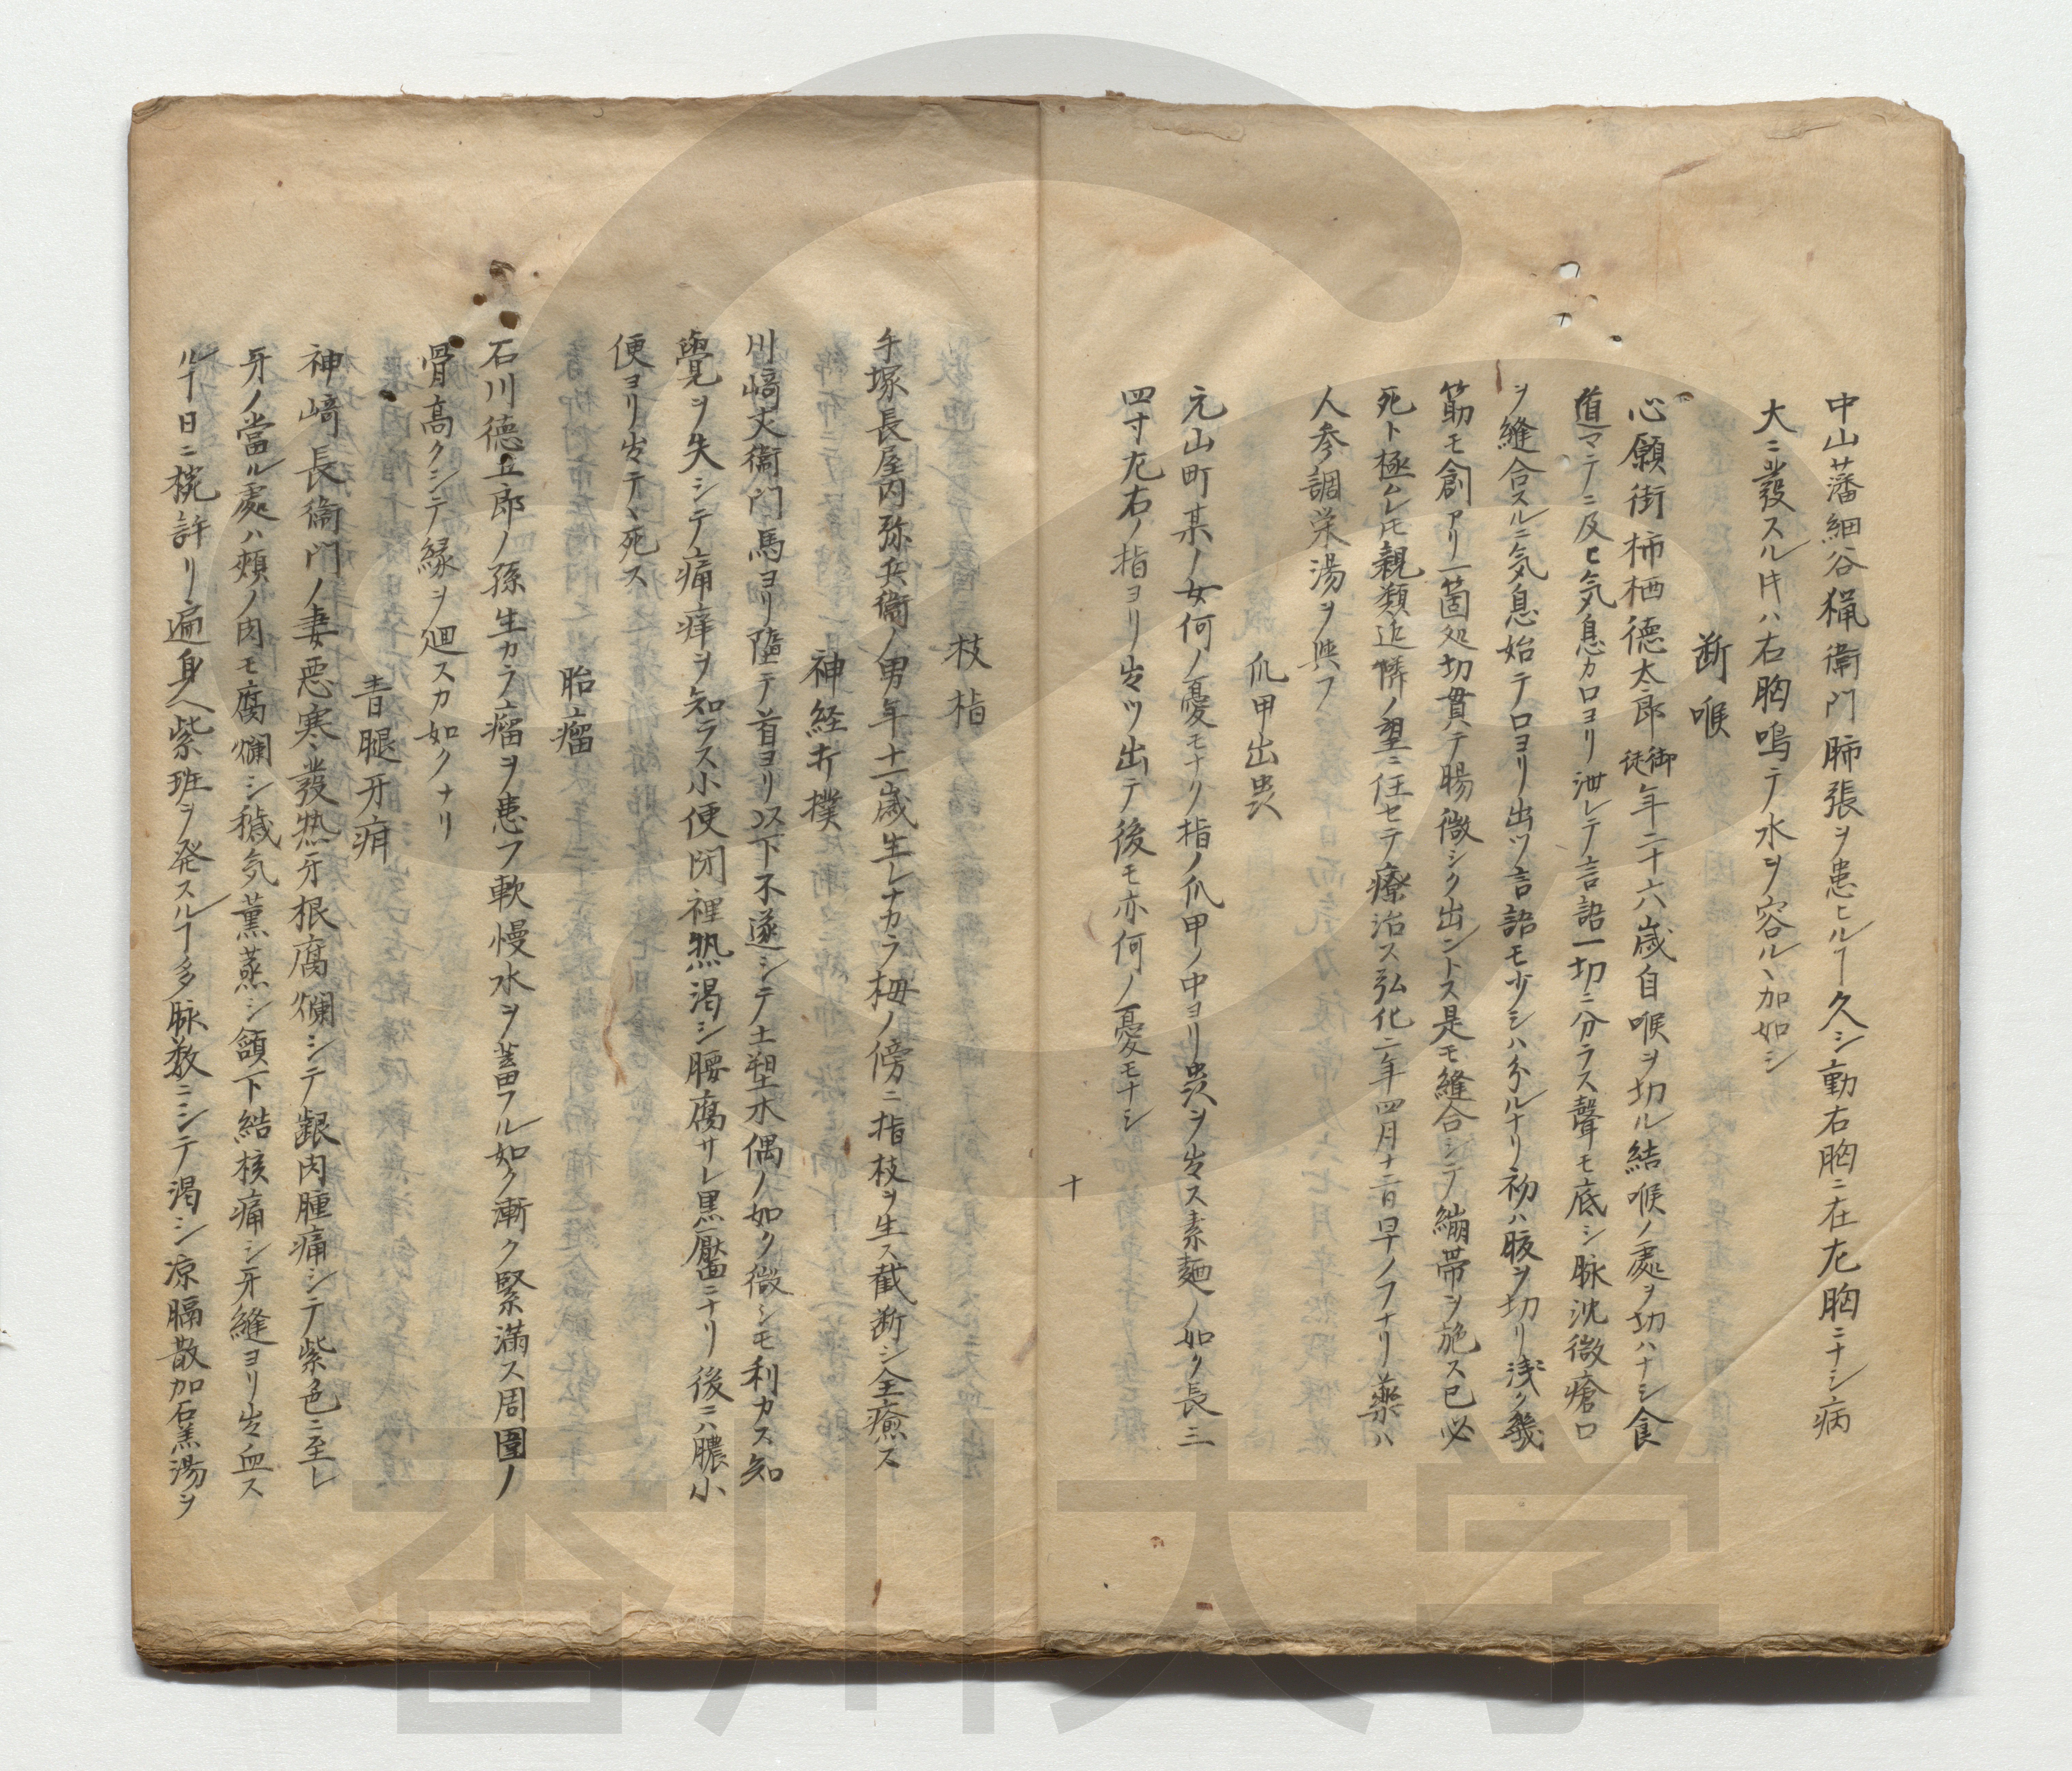 中山藩細谷猟衞門肺張ヲ患ヒルヿ久シ動右胸ニ在左胸ニナシ病
大ニ發スル𪜈ハ右胸鳴テ水ヲ容ルヽ加如シ
断喉
心願街柿栖德太郎御徒年二十六歳自喉ヲ切ル結喉ノ處ヲ切ハナシ食
道マテニ及ヒ気息カロヨリ泄レテ言語一切ニ分ラス聲モ底シ脉沈微瘡口
ヲ縫合スルニ気息始テロヨリ出ツ言語モ少シハ分ルナリ初ハ腹ヲ切リ浅ク幾
筋モ創アリ一箇処切貫テ腸微シク出ントス是モ縫合シテ繃帯ヲ施ス已必
死ト極ムレ𪜈親類近隣ノ望ニ任セテ療治ス弘化二年四月十二日早ノフナリ藥ハ
人参調栄湯ヲ與フ
爪甲出虫
元山町某ノ女何ノ憂モナク指ノ爪甲ノ中ヨリ虫ヲ出ス素麺ノ如ク長三
四寸左右ノ指ヨリ出ツ出テ後モ亦何ノ憂モナシ
十
枝指
手塚長屋内弥兵衞ノ男年十一歳生レナカラ拇ノ傍ニ指枝ヲ生ス截断シ全癒ス
神経打撲
川﨑丈衞門馬ヨリ墮テ首ヨリ以下不遂シテ土塑木偶ノ如ク微シモ利カス知
覺ヲ失シテ痛痒ヲ知ラス小便閉裡熱渇シ腰腐サレ黒靨ニナリ後ニハ膿小
便ヨリ出テヽ死ス
胎瘤
石川徳五郎ノ孫生カラ瘤ヲ患フ軟慢水ヲ蓄フル如ク漸ク緊滿ス周圍ノ
骨高クシテ縁ヲ廻スカ如クナリ
青腿牙疳
神﨑長衞門ノ妻悪寒發熱牙根腐爛シテ齦肉腫痛シテ紫色ニ至レ
牙ノ當ル處ハ頬ノ肉モ腐爛シ穢気薫蒸シ頷下結核痛シ牙縫ヨリ出血ス
ルヿ日ニ椀許リ遍身ヘ紫班ヲ発スルヿ多脉数ニシテ渇シ凉膈散加石羔湯ヲ